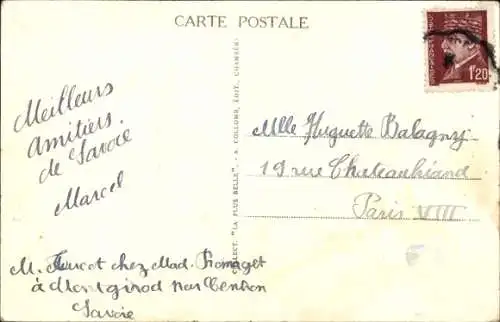 CARTE POSTALE
Meilleurs
amitiés.
de Savoie
Marcel
M. Turcot chez Mad. Fromaget
à Montgirod par Centron
Savoie
COLLECT. "LA PLUS BELLE" - A COLLOMB, ÉDIT. CHAMBÉRY
1F20
Mlle Huguette Balagny
19 rue Chateaubriand
Paris VIII